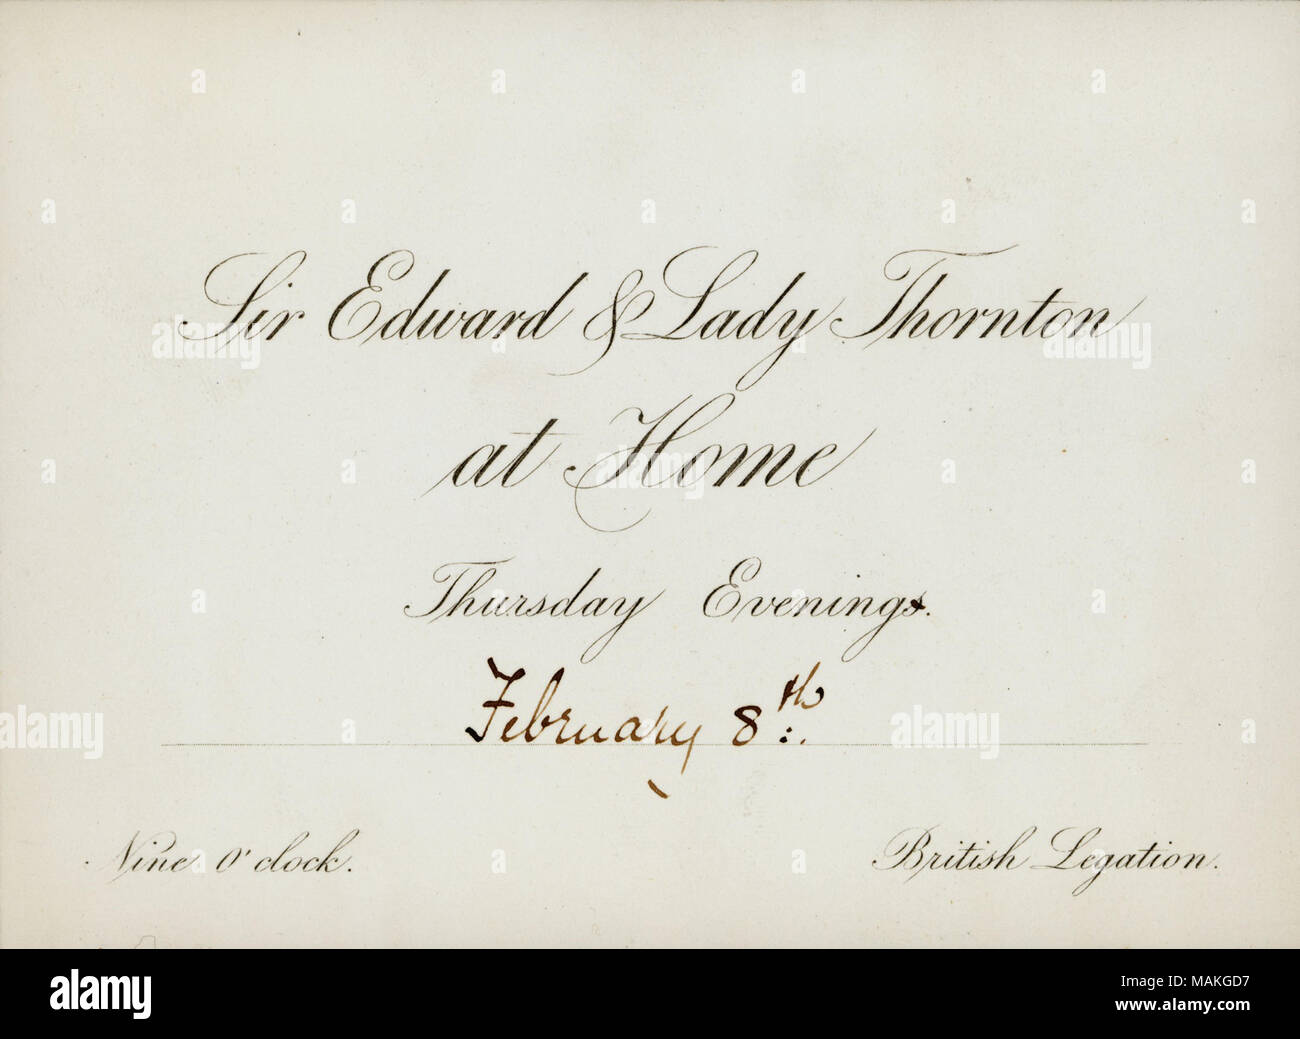 Sir Edward & Lady Thornton
at Home
Thursday Evenings.
February 8th.
Nine O'clock.
British Legation.
a alamy stock photo
alamy
Image ID: MAKGD7
www.alamy.com